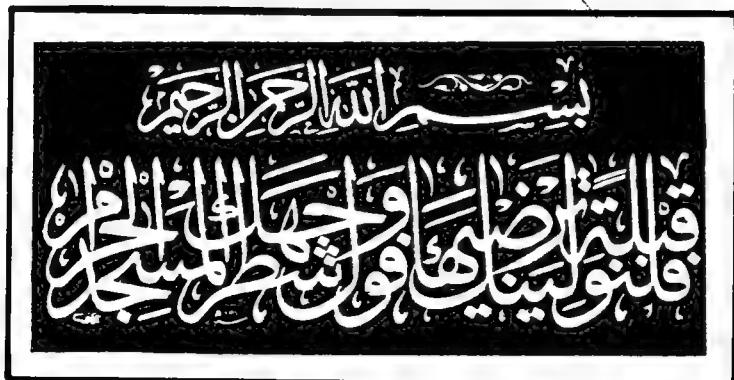 بِسْمِ اللَّهِ الرَّحْمَٰنِ الرَّحِيمِ
فَلَنُوَلِّيَنَّكَ قِبْلَةً تَرْضَىٰهَا فَوَلِّ وَجْهَكَ شَطْرَ الْمَسْجِدِ الْحَرَامِ